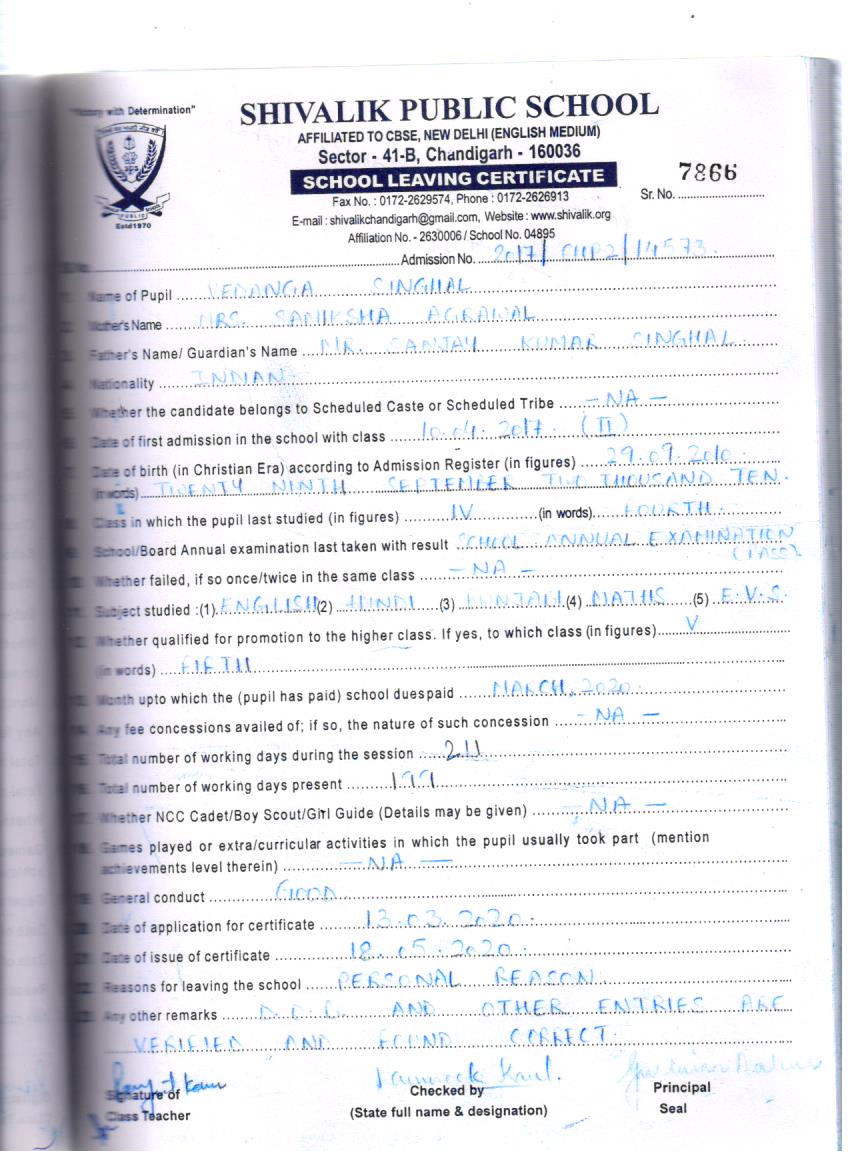 "Victory with Determination"
SHIVALIK PUBLIC SCHOOL
AFFILIATED TO CBSE, NEW DELHI (ENGLISH MEDIUM)
Sector - 41-B, Chandigarh - 160036
SCHOOL LEAVING CERTIFICATE
7866
Sr. No.
Fax No. : 0172-2629574, Phone : 0172-2626913
E-mail : shivalikchandigarh@gmail.com, Website : www.shivalik.org
Affiliation No. - 2630006 / School No. 04895
PUBLIC
Estd1970
Admission No. 2017/CHP2/14573.
Name of Pupil VEDANGA SINGHAL
Mother's Name MRS. SAMIKSHA AGRAWAL
Father's Name/ Guardian's Name MR. SANJAY KUMAR SINGHAL
Nationality INDIAN
Whether the candidate belongs to Scheduled Caste or Scheduled Tribe - NA -
Date of first admission in the school with class 10.04.2017. (II)
Date of birth (in Christian Era) according to Admission Register (in figures) 29.09.2010.
(in words) TWENTY NINTH SEPTEMBER TWO THOUSAND TEN.
Class in which the pupil last studied (in figures) IV (in words) FOURTH.
School/Board Annual examination last taken with result SCHOOL ANNUAL EXAMINATION
(PASS)
Whether failed, if so once/twice in the same class - NA -
Subject studied :(1) ENGLISH (2) HINDI (3) PUNJABI (4) MATHS (5) E.V.S.
Whether qualified for promotion to the higher class. If yes, to which class (in figures) V
(in words) FIFTH
Month upto which the (pupil has paid) school duespaid MARCH, 2020.
Any fee concessions availed of; if so, the nature of such concession - NA -
Total number of working days during the session 211
Total number of working days present 199
Whether NCC Cadet/Boy Scout/Girl Guide (Details may be given) - NA -
Games played or extra/curricular activities in which the pupil usually took part (mention
achievements level therein) - NA -
General conduct GOOD
Date of application for certificate 13.03.2020.
Date of issue of certificate 18.05.2020.
Reasons for leaving the school PERSONAL REASON.
Any other remarks D.O.B. AND OTHER ENTRIES ARE
VERIFIED AND FOUND CORRECT.
Signature of
Class Teacher
Checked by
(State full name & designation)
Principal
Seal